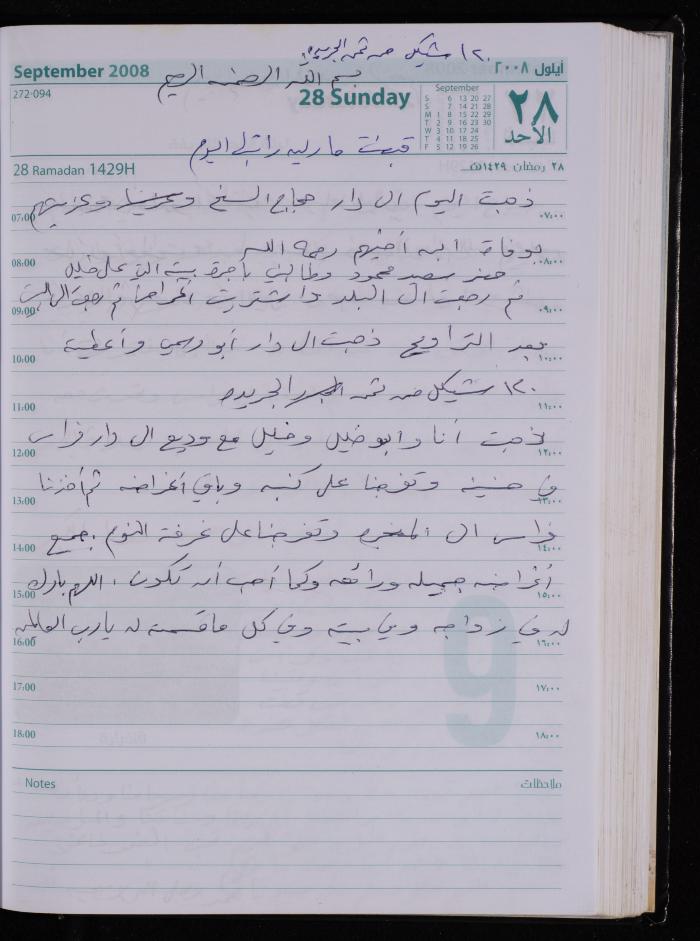 ١٢٠ شيكل من ثمن الجريده
September 2008
أيلول ٢٠٠٨
بسم الله الرحمن الرحيم
272-094
28 Sunday
September
S 6 13 20 27
S 7 14 21 28
M 1 8 15 22 29
T 2 9 16 23 30
W 3 10 17 24
T 4 11 18 25
F 5 12 19 26
٢٨
الأحد
قبضت راتبي اليوم
28 Ramadan 1429H
٢٨ رمضان ١٤٢٩هـ
ذهبت اليوم الى دار حجاج الشيخ وعزيتهم
07:00 ٠٧:٠٠
بوفاة ابن أخيهم رحمه الله
08:00 ٠٨:٠٠
حضر سعد محمود وطالبني بأجرة بيته
ثم رجعت الى البلد واشتريت أغراضا ثم رجعت الى البيت
09:00 ٠٩:٠٠
بعد التراويح ذهبت الى دار أبو رسمي وأعطيته
10:00 ١٠:٠٠
١٢٠ شيكل من ثمن الجريده
11:00 ١١:٠٠
ذهبت أنا وابو خليل وخليل مع وديع الى دار فراس
12:00 ١٢:٠٠
في وتفرجنا على كنبه وباقي أغراضه ثم أخذنا
13:00 ١٣:٠٠
فراس الى المنجره وتفرجنا على غرفة النوم، جميع
14:00 ١٤:٠٠
أغراضه جميله ورائعه وكما أحب أن تكون، اللهم بارك
15:00 ١٥:٠٠
له في زواجه وفي بيته وفي كل ما قسمته له يا رب العالمين
16:00 ١٦:٠٠
17:00 ١٧:٠٠
18:00 ١٨:٠٠
9
Notes
ملاحظات